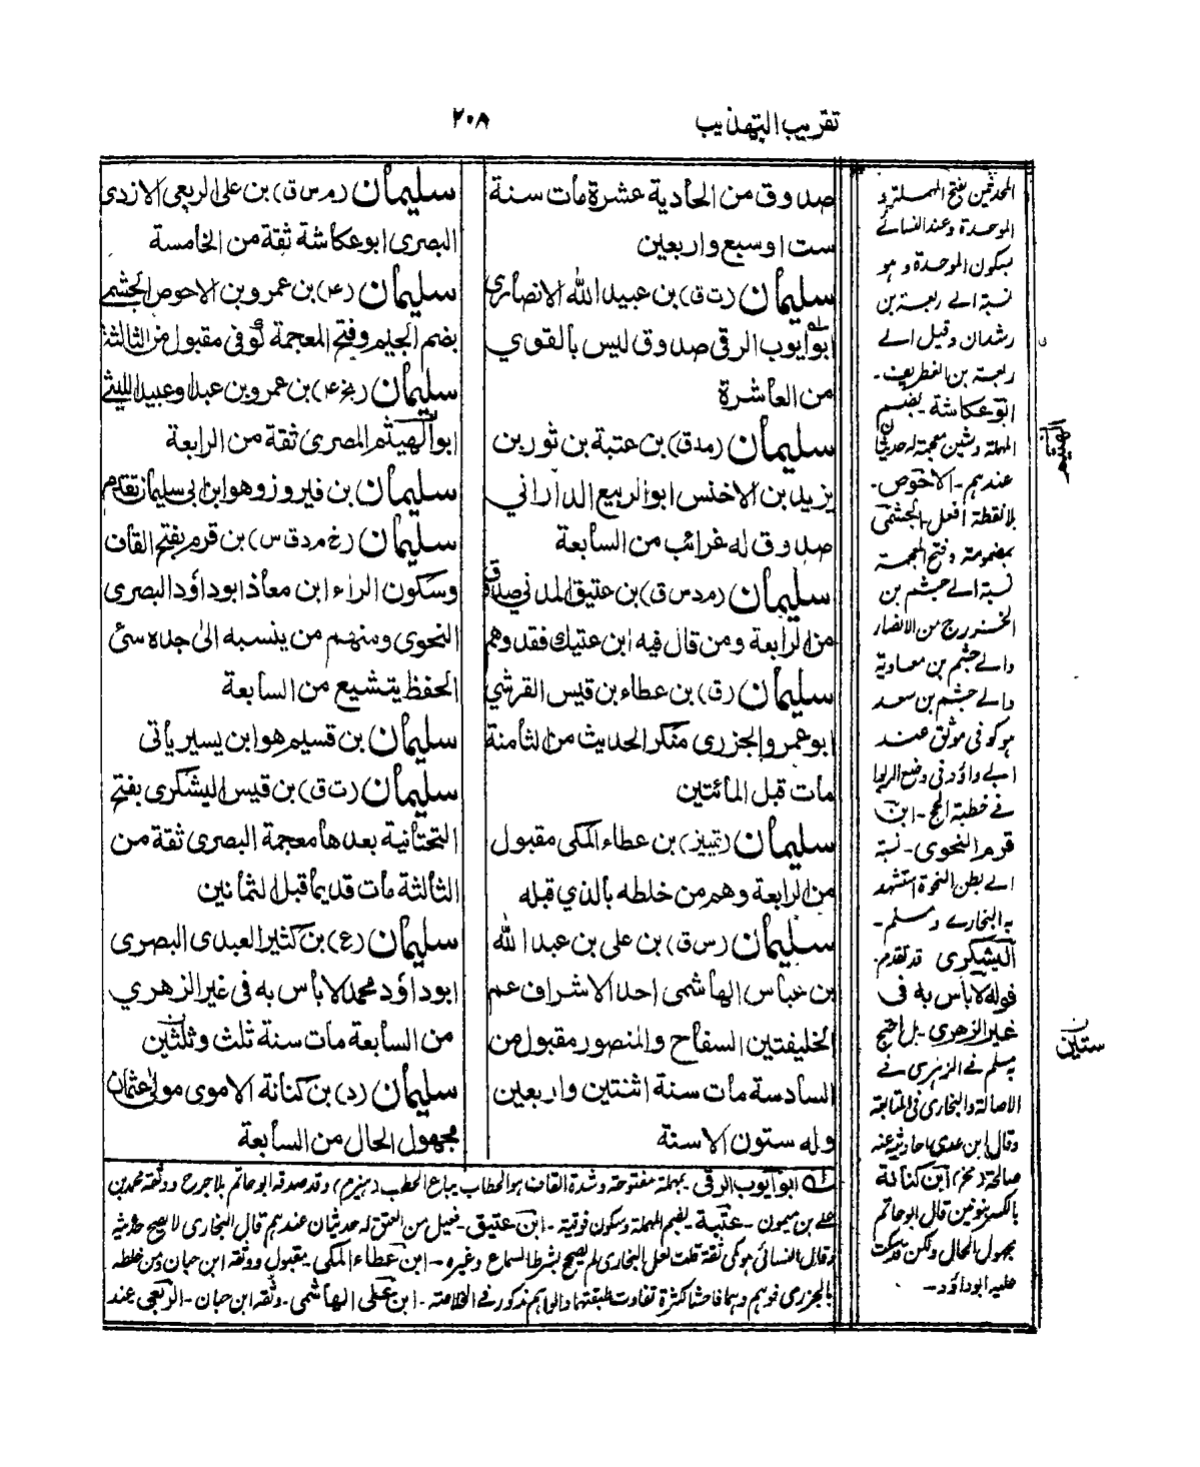 تقريب التهذيب
٢٠٨
صدوق من الحادية عشرة مات سنة
ست او سبع واربعين
سليمان (ت ق) بن عبيد الله الانصاري
ابو ايوب الرقى صدوق ليس بالقوي
من العاشرة
سليمان (مد ق) بن عتبة بن ثور بن
يزيد بن الاخنس ابو الربيع الداراني
صدوق له غرائب من السابعة
سليمان (مد س ق) بن عتيق المدني صدوق
من الرابعة ومن قال فيه ابن عتيك فقد وهم
سليمان (ق) بن عطاء بن قيس القرشي
ابو عمرو الجزرى منكر الحديث من الثامنة
مات قبل المائتين
سليمان (تمييز) بن عطاء المكى مقبول
من الرابعة وهم من خلطه بالذي قبله
سليمان (س ق) بن على بن عبد الله
بن عباس الهاشمى احد الاشراف عم
الخليفتين السفاح والمنصور مقبول من
السادسة مات سنة اثنتين واربعين
وله ستون الا سنة
سليمان (م س ق) بن على الربعى الازدى
البصرى ابو عكاشة ثقة من الخامسة
سليمان (عه) بن عمرو بن الاحوص الجشمى
بضم الجيم وفتح المعجمة كوفى مقبول من الثالثة
سليمان (بخ عه) بن عمرو بن عبد او عبيد الليثى
ابو الهيثم المصرى ثقة من الرابعة
سليمان بن فيروز وهو ابن ابى سليمان تقدم
سليمان (خ م د ق س) بن قرم بفتح القاف
وسكون الراء ابن معاذ ابو داؤد البصرى
النحوى ومنهم من ينسبه الى جده سئ
الحفظ يتشيع من السابعة
سليمان بن قسيم هو ابن يسير يأتى
سليمان (ت ق) بن قيس اليشكرى بفتح
التحتانية بعدها معجمة البصرى ثقة من
الثالثة مات قديما قبل الثمانين
سليمان (ع) بن كثير العبدى البصرى
ابو داؤد محمد لا بأس به فى غير الزهري
من السابعة مات سنة ثلث وثلثين
سليمان (د) بن كنانة الاموى مولى عثمان
مجهول الحال من السابعة
ابو ايوب الرقى - بمهملة مفتوحة وشدة القاف هو الحطاب يباع الحطب وقد صدقه ابو حاتم بلا جرح ووثقه محمد بن
على بن ميمون - عتبة - بضم المهملة وسكون فوقية - ابن عتيق - فعيل من العتق له حديثان عندهم قال البخارى لا يصح حديثه
وقال النسائى هو مكى ثقة قلت لعل البخارى لم يصح بشرط السماع وغيره - ابن عطاء المكى مقبول ووثقه ابن حبان ومن خلطه
بالجزرى فوهم وهما فاحشا لكثرة تفاوت طبقتهما والواهم مذكور فى الخلاصة - ابن على الهاشمى - وثقه ابن حبان - الربعى عند
المحدثين بفتح المهملة و
الموحدة وعند النسائے
بسكون الموحدة وهو
نسبة الے ربيعة بن
رشدان وقيل الے
ربيعة بن الغطريف -
ابو عكاشة - بضم
المهملة وشين معجمة له حديثان
عندهم - الاحوص -
بلا نقطة افعل - الجشمى
بمضمومة وفتح المعجمة
نسبة الے جشم بن
الخزرج من الانصار
والے جشم بن معاوية
والے جشم بن سعد
هو كوفى موثق عند
ابے داؤد فى وضع الربوا
فے خطبة الحج - ابن
قرم النحوى - نسبة
الے بطن النحوة استشهد
به البخارے ومسلم -
اليشكرى قد تقدم -
قوله لا بأس به فى
غير الزهرى - بل احتج
به مسلم فے الزهرى فے
الاصالة والبخارى فى المتابعة
وقال ابن عدى احاديثه عنه
صالحة - ابن كنانة
بالكسر بنونين قال ابو حاتم
مجهول الحال ولكن قد سكت
عليه ابو داؤد -
ستين